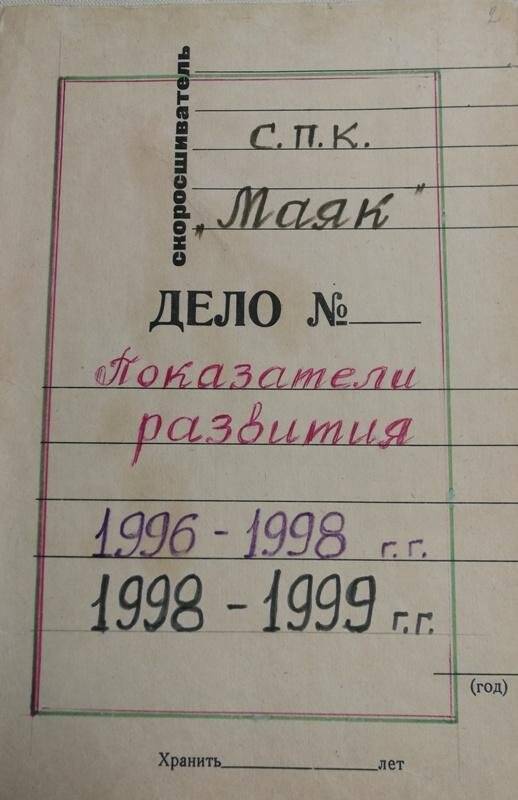 2
скоросшиватель
С.П.К.
„Маяк"
ДЕЛО №
Показатели
развития
1996 - 1998 г.г.
1998 - 1999 г.г.
(год)
Хранить лет